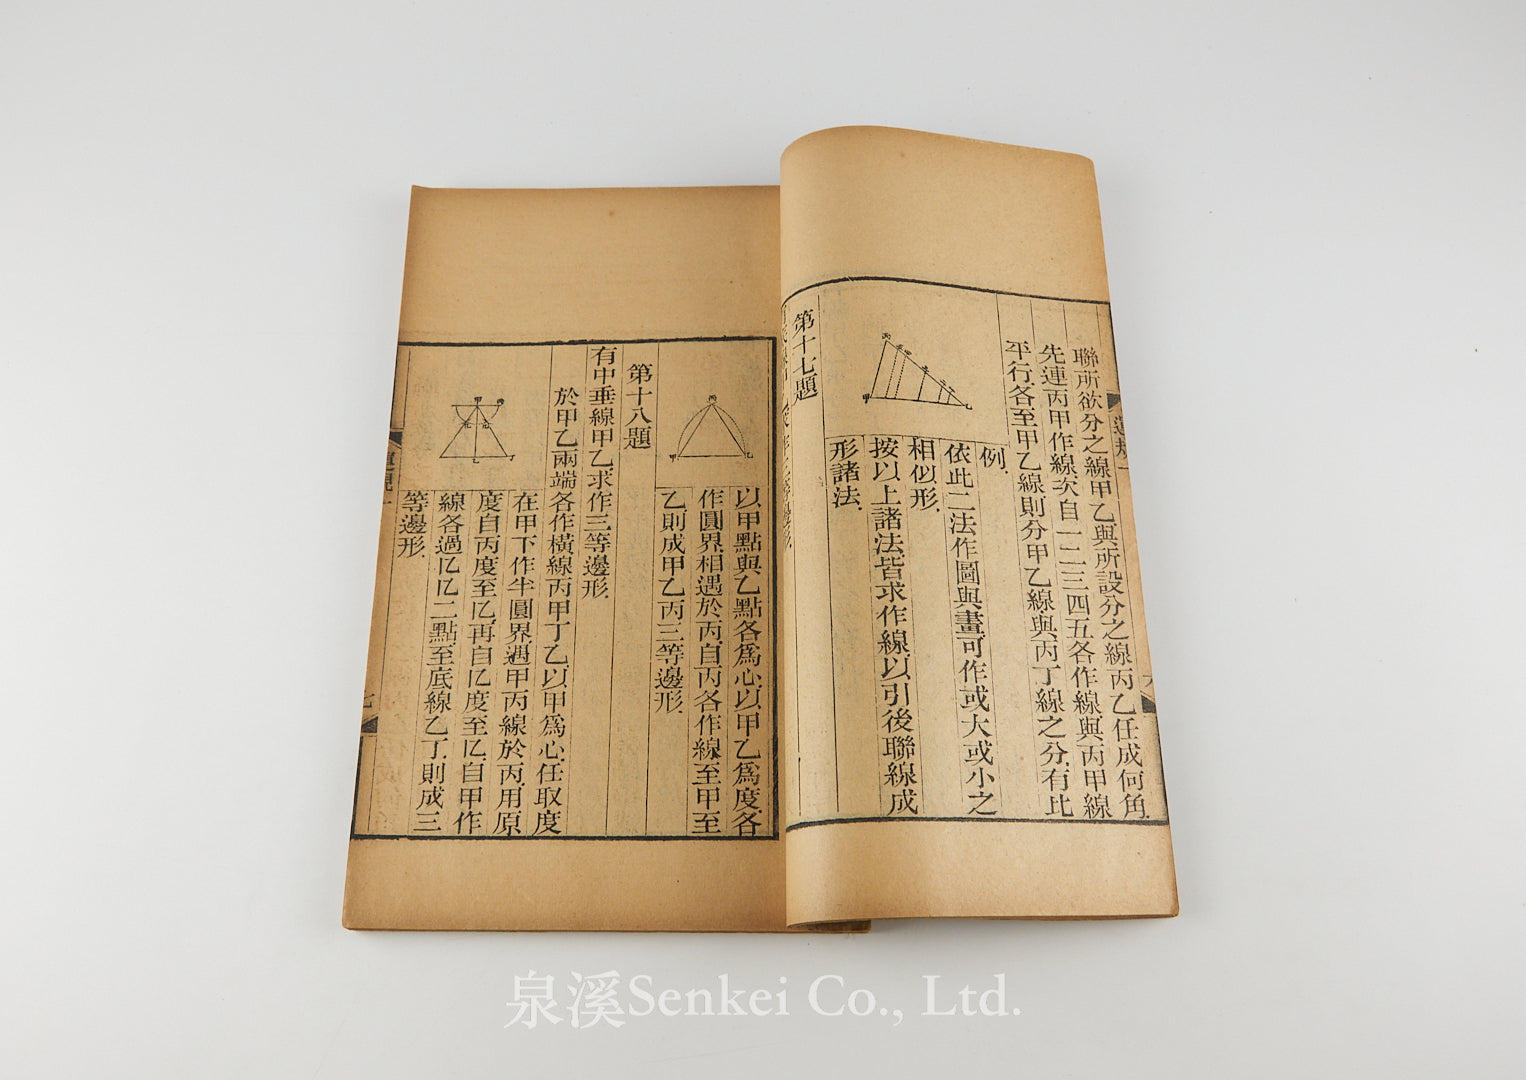 聯所欲分之線甲乙與所設分之線丙乙任成何角
先連丙甲作線次自一二三四五各作線與丙甲線
平行各至甲乙線則分甲乙線與丙丁線之分有比
例
依此二法作圖與畫可作或大或小之
相似形
按以上諸法皆求作線以引後聯線成
形諸法
第十七題
以甲點與乙點各爲心以甲乙爲度各
作圓界相遇於丙自丙各作線至甲至
乙則成甲乙丙三等邊形
第十八題
有中垂線甲乙求作三等邊形
於甲乙兩端各作橫線丙甲丁乙以甲爲心任取度
在甲下作半圓界遇甲丙線於丙用原
度自丙度至㐆再自㐆度至㐆自甲作
線各過㐆㐆二點至底線乙丁則成三
等邊形
泉溪Senkei Co., Ltd.